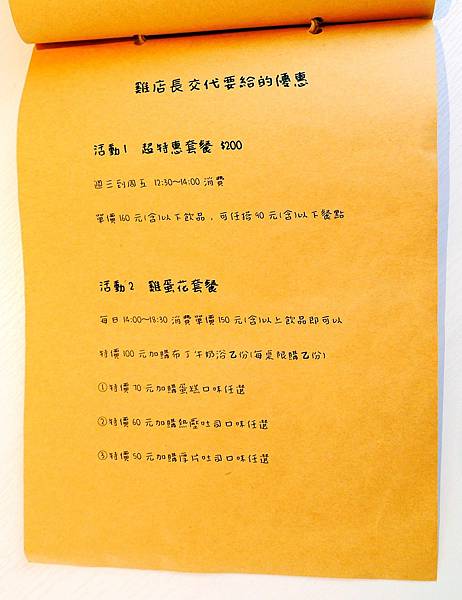 雞店長交代要給的優惠
活動1 超特惠套餐 $200
週三到周五 12:30~14:00 消費
單價160元(含)以下飲品，可任搭90元(含)以下餐點
活動2 雞蛋花套餐
每日14:00~18:30 消費單價150元(含)以上飲品即可以
特價100元加購布丁牛奶浴乙份(每桌限購乙份)
①特價70元加購蛋糕口味任選
②特價60元加購熱壓吐司口味任選
③特價50元加購厚片吐司口味任選